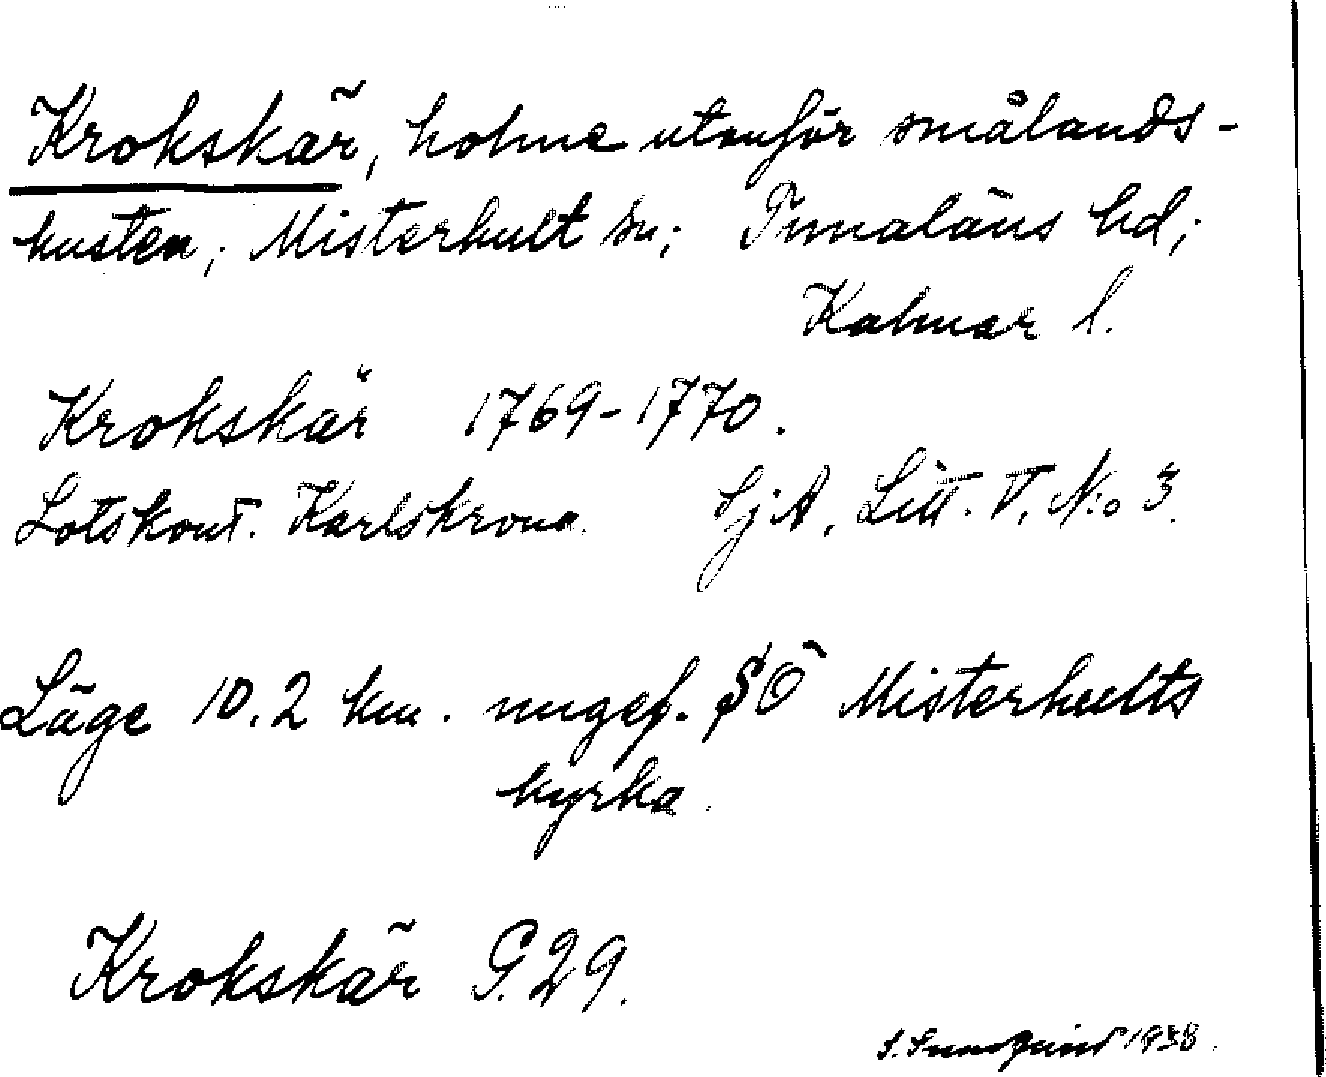 Krokskär, holme utanför smålands-
kusten; Misterhult sn; Tunaläns hd;
Kalmar l.
Krokskär 1769-1770.
Lotskont. Karlskrona. SjA. Litt. V. N:o 3.
Läge 10.2 km. ungef. SÖ Misterhults
kyrka.
Krokskär G. 29.
1938.